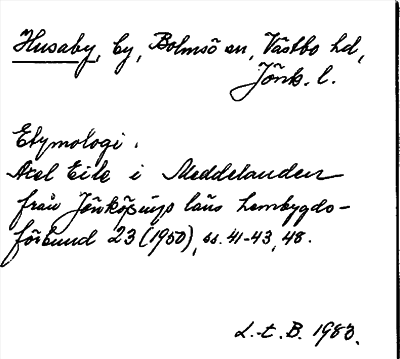 Husaby, by, Bolmsö sn, Västbo hd,
Jönk. l.
Etymologi:
Axel Eile i Meddelanden
från Jönköpings läns hembygds-
förbund 23 (1950), ss. 41-43, 48.
L.-t. B. 1983.